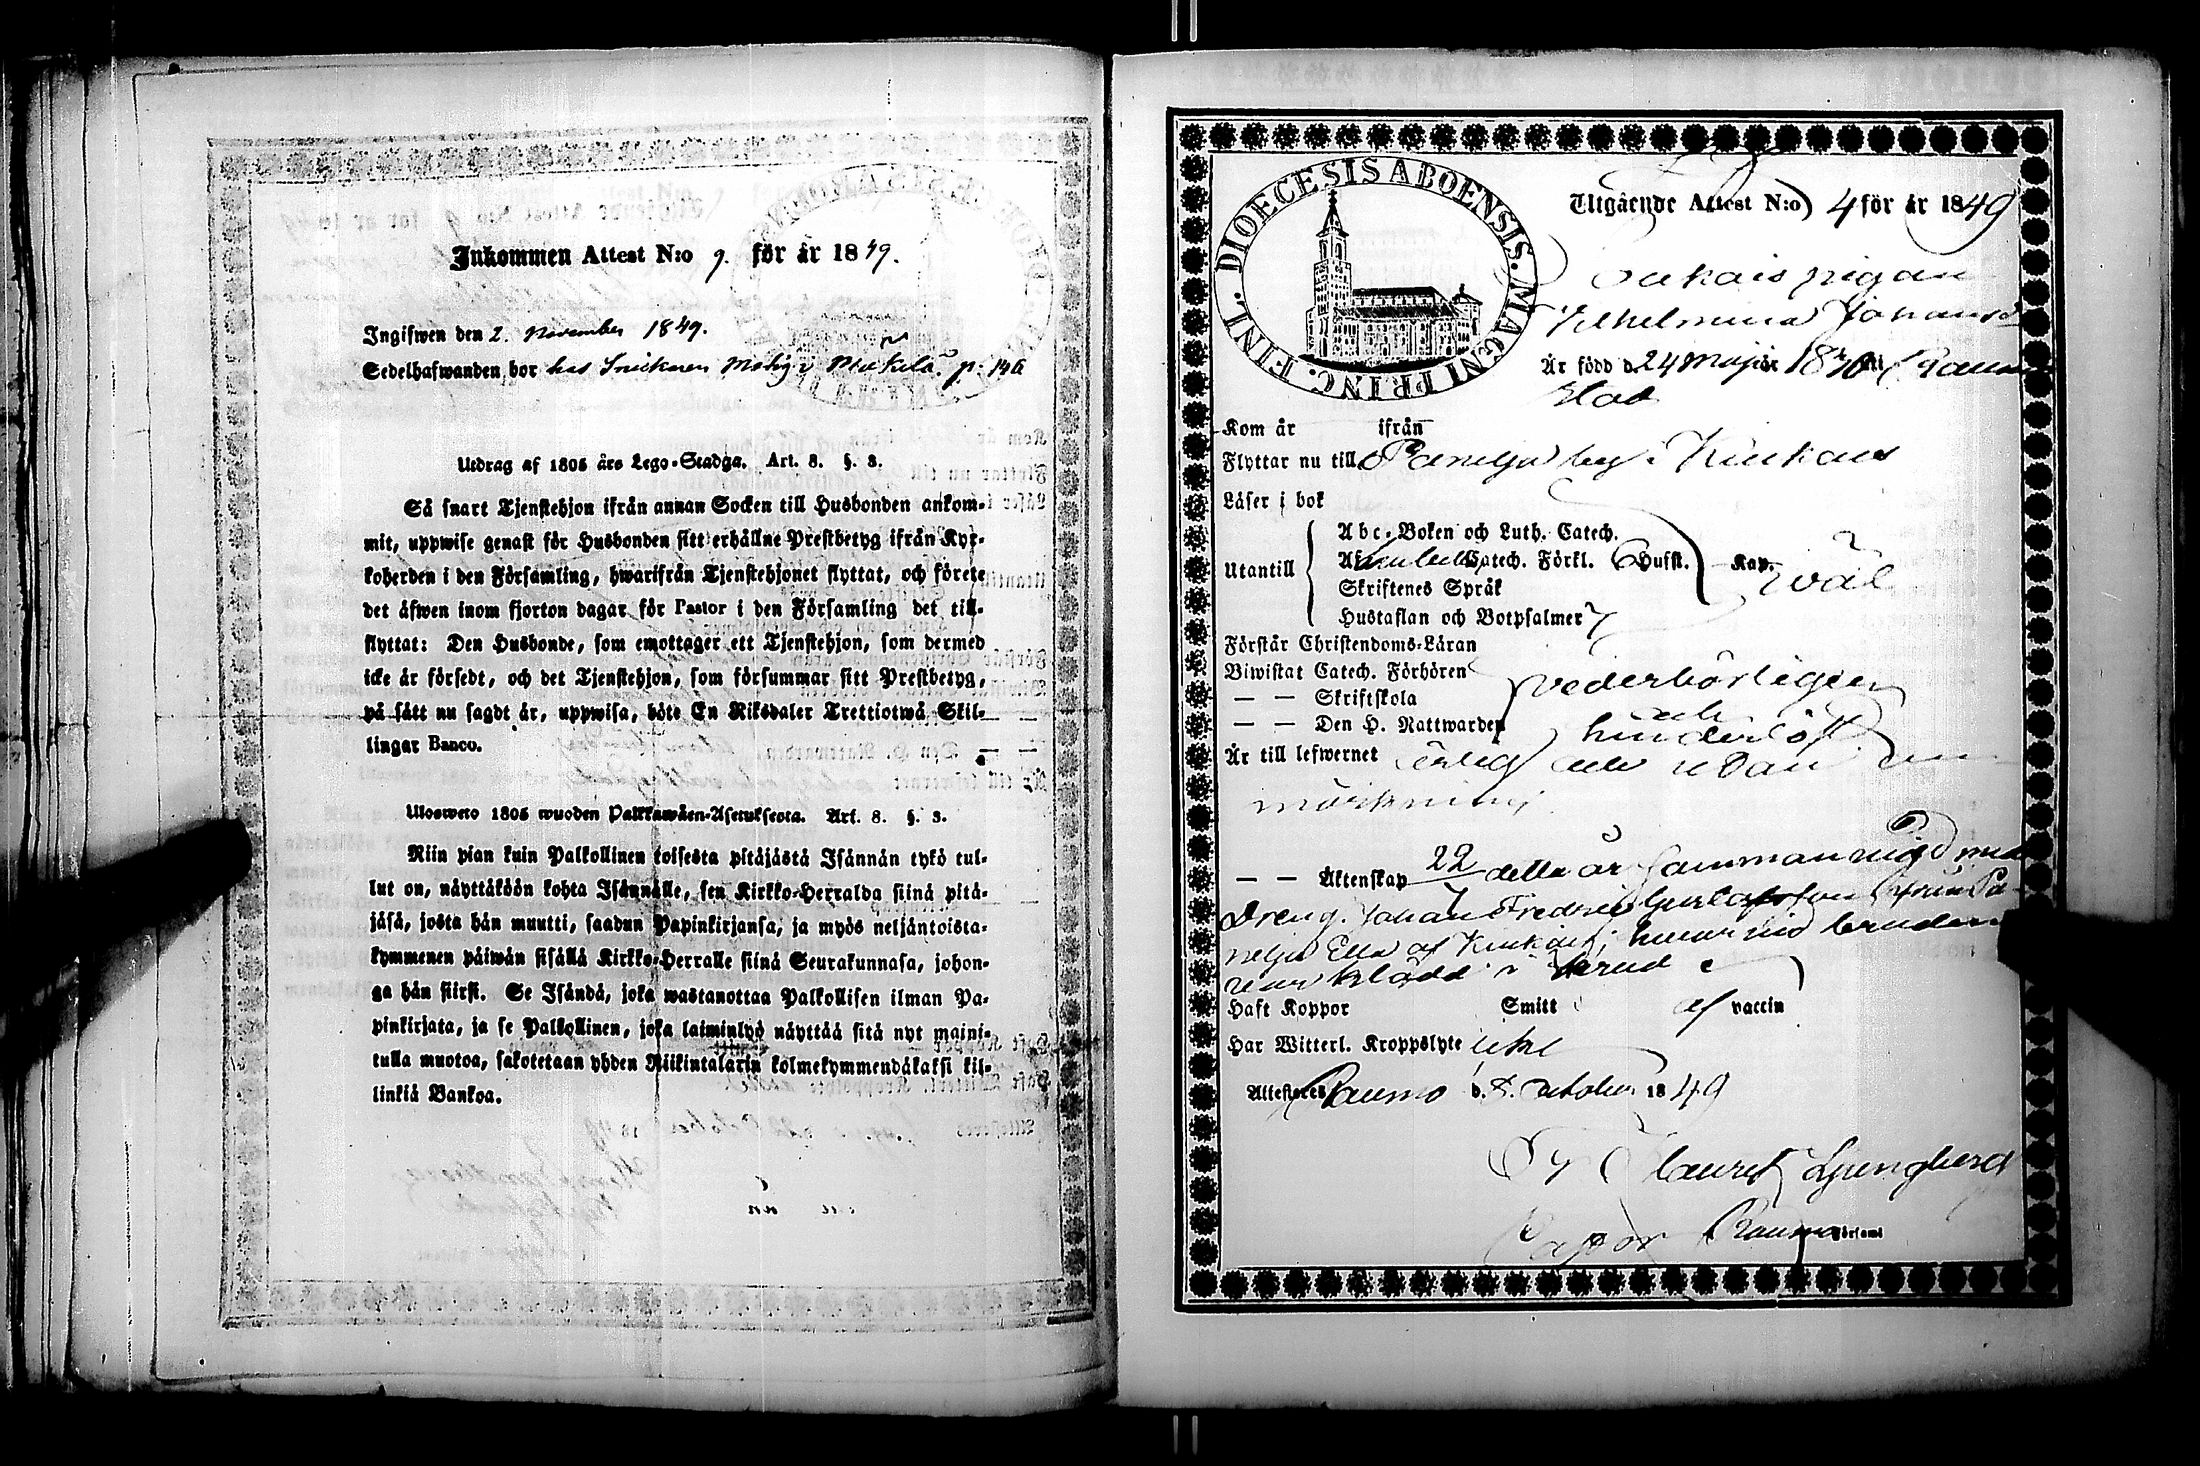 Inkommen Attest N:o 9. för år 1849.
Ingifwen den 2. November 1849.
Sedelhafwanden bor hos Snickaren i Mäkelä p. 146
Utdrag af 1805 års Lego-Stadga. Art. 8. §. 3.
Så snart Tjenstehjon ifrån annan Socken till Husbonden ankom-
mit, uppwise genast för Husbonden sitt erhållne Prestbetyg ifrån Kyr-
koherden i den Församling, hwarifrån Tjenstehjonet flyttat, och förete
det äfwen inom fjorton dagar för Pastor i den Församling det till-
flyttat: Den Husbonde, som emottager ett Tjenstehjon, som dermed
icke är försedt, och det Tjenstehjon, som försummar sitt Prestbetyg,
på sätt nu sagdt är, uppwisa, böte En Riksdaler Trettiotwå Skil-
lingar Banco.
Ulosweto 1805 wuoden Palkkawäen-Asetuksesta. Art. 8. §. 3.
Niin pian kuin Palkollinen toisesta pitäjästä Isännän tykö tul-
lut on, näyttäköön kohta Isännälle, sen Kirkko-Herralda siinä pitä-
jäsä, josta hän muutti, saadun Papinkirjansa, ja myös neljäntoista-
kymmenen päiwän sisällä Kirkko-Herralle siinä Seurakunnasa, johon-
ga hän siirsi. Se Isändä, joka wastanottaa Palkollisen ilman Pa-
pinkirjata, ja se Palkollinen, joka laiminlyö näyttää sitä nyt maini-
tulla muotoa, sakotetaan yhden Riikintalarin kolmekymmendäkaksi kil-
linkiä Bankoa.
DIOECESIS ABOENSIS. MAGNI PRINC. FINL.
Utgående Attest N:o 4 för år 1849
pigan
Vilhelmina Johansd
Är född d. 24 Maji år 18 i Raumo
stad
Kom år ifrån
Flyttar nu till Panelja by i Kiukais
Läser i bok
Utantill
Abc-Boken och Luth. Catech.
Catech. Förkl. Hufst. Kap.
Skriftenes Språk
Hustaflan och Botpsalmer
wäl
Förstår Christendoms-Läran
Biwistat Catech. Förhören
— — Skriftskola
— — Den H. Nattwarden
vederbörligen
och
hinderlöst
Är till lefwernet ärlig och utan an-
märkning
— — Äktenskap 22/7 detta år sammanvigd med
Dreng. Johan Fredric Gustafsson från Pa-
nelja Ella af Kiukais; hvarvid bruden
var klädd i krud
Haft Koppor Smitt af vaccin
Har Witterl. Kroppslyte icke
Attesteres Raumo d. 8. October 1849
Laurell Ljungberg
Pastor Raumo Församl